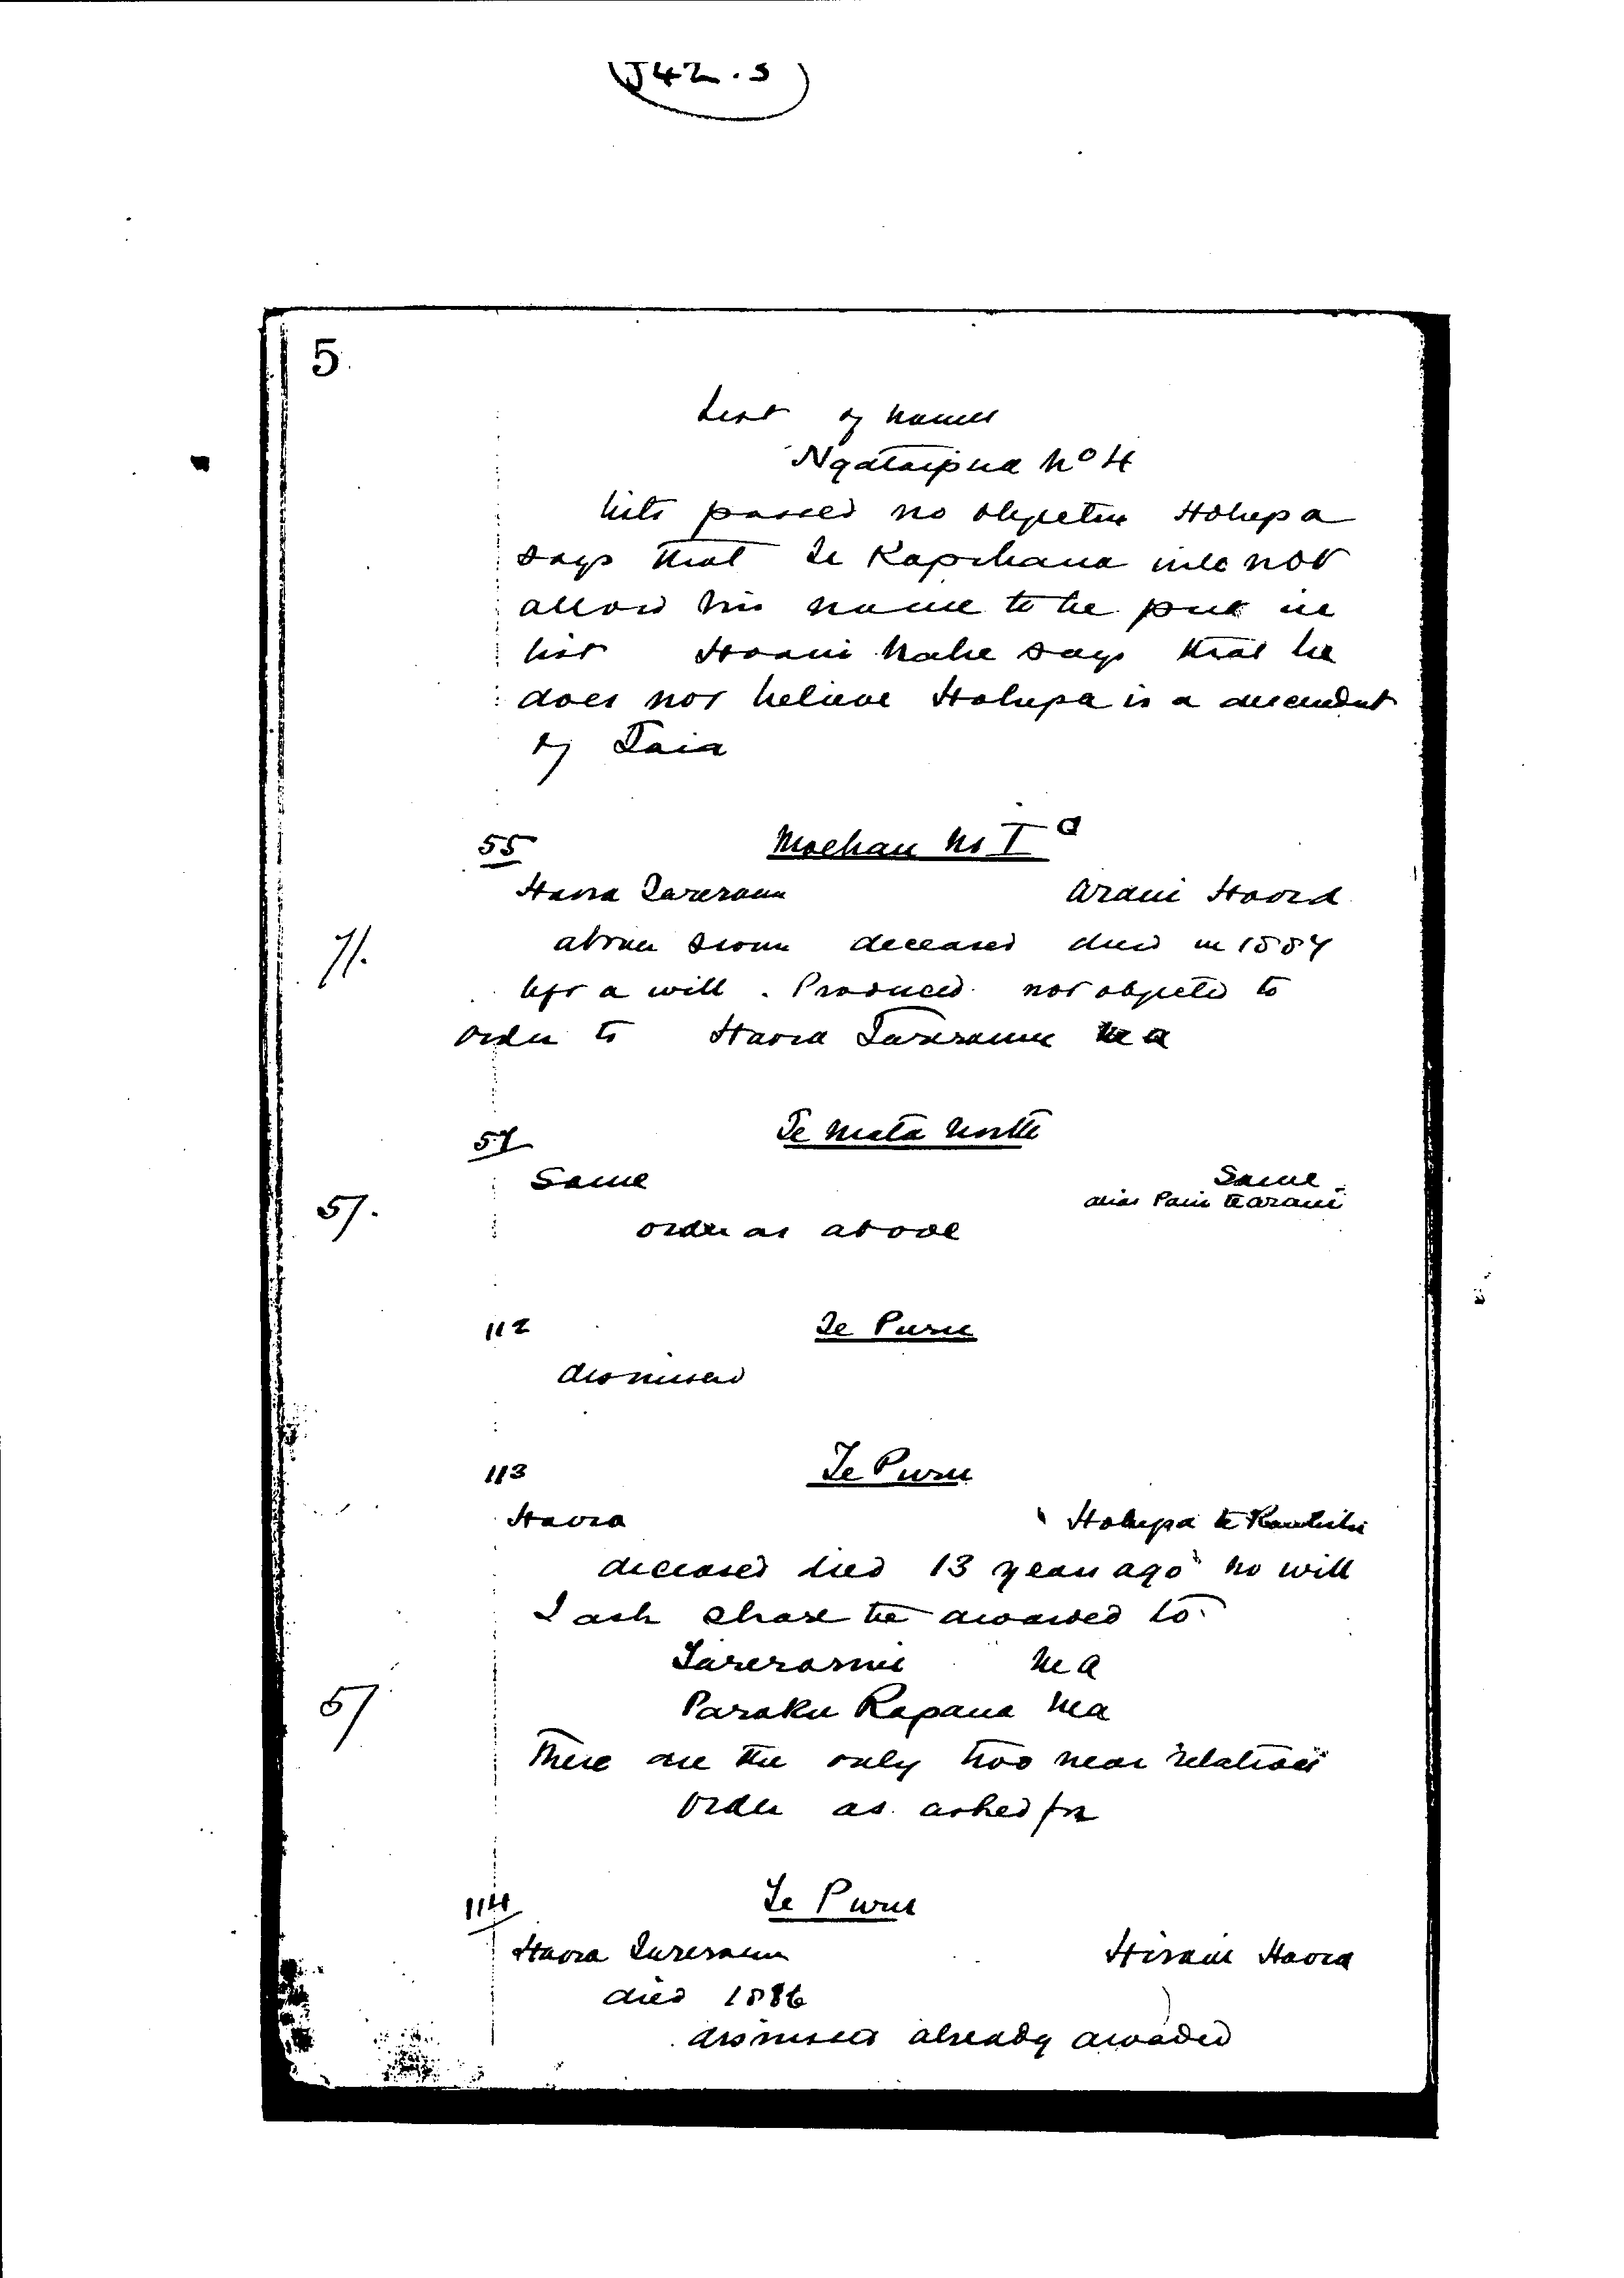 J42.S
5
List of names
Ngataipua No 4
lists passed no objection Hohepa
says that Te Kapihana will not
allow his name to be put in
list Hoani Nahe says that he
does not believe Hohepa is a descendant
of Taia
55 Moehau No I a
Haora Tareranui Arani Haora
above sworn deceased died in 1887
left a will. Produced. not objected to
order to Haora Tareranui m a
57 Te Mata North
Same Same
alias Pani te arani
5/.
order as above
112 Te Puru
dismissed
113 Te Puru
Haora Hohepa te
deceased died 13 years ago no will
I ask share be awarded to
Tareranui m a
Paraku Rapana m a
5/
These are the only two near relations
order as asked for
114 Te Puru
Haora Tareranui Haora
died 1886
dismissed already awarded